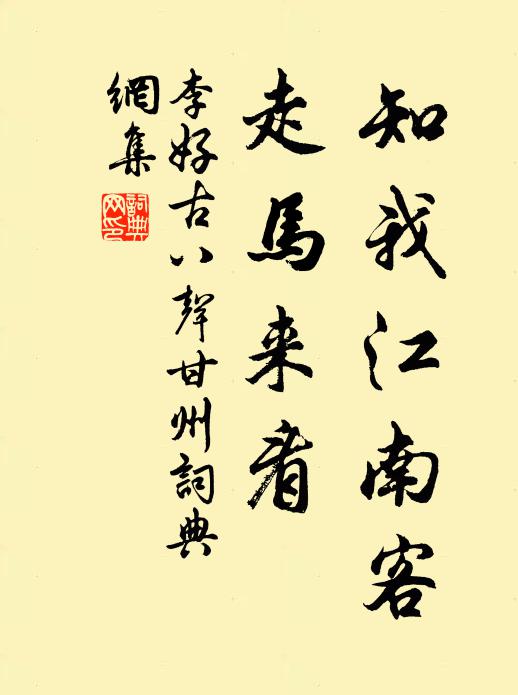 知我江南客
走馬来看
李好古八聲甘州詞典
網集
詞典
网印